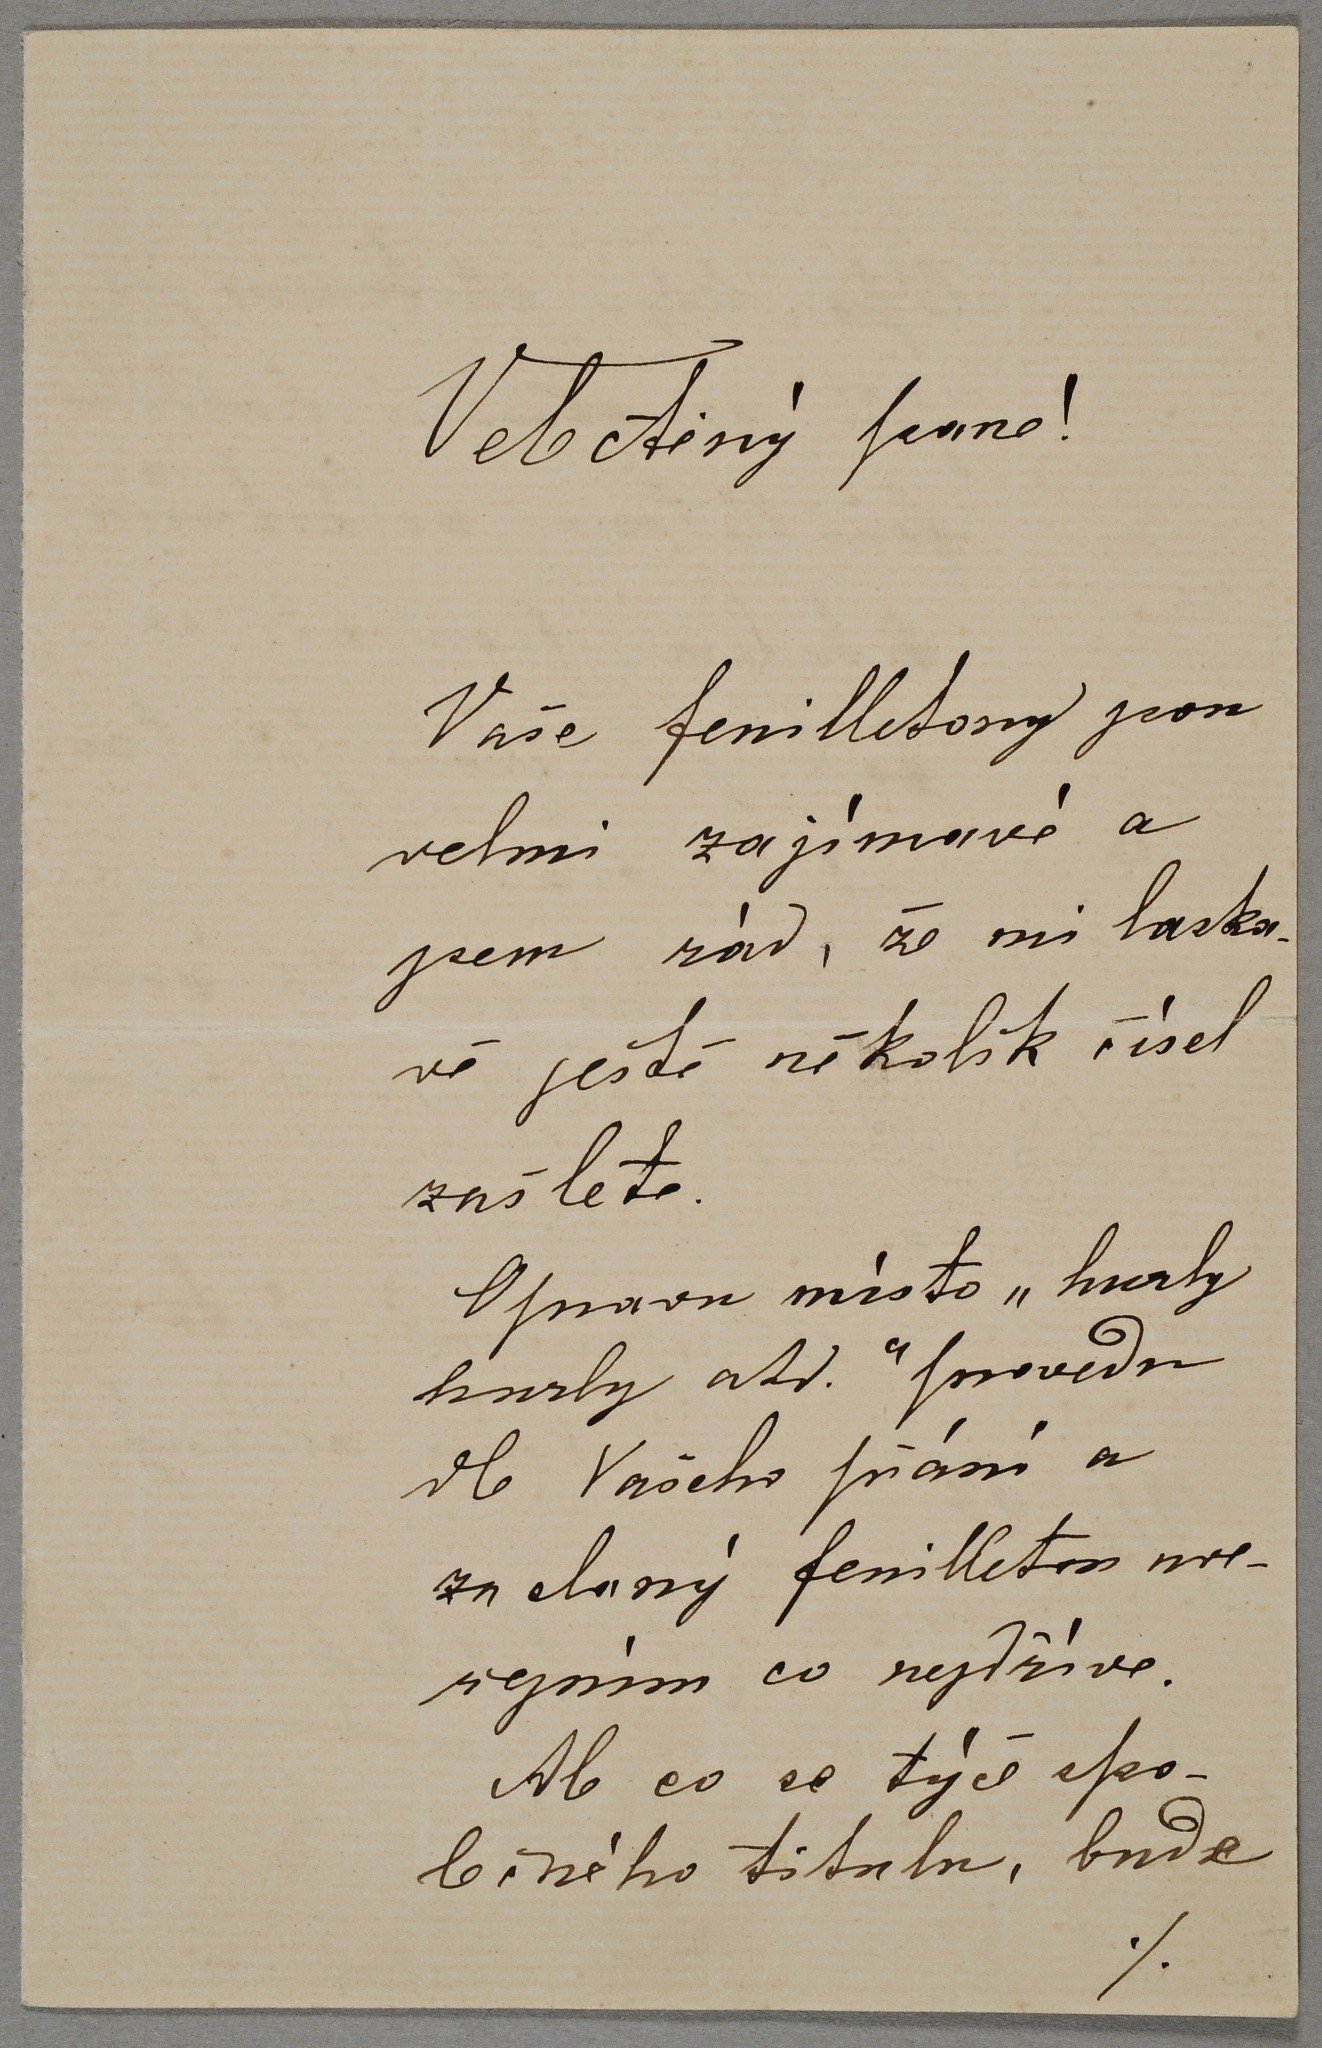 Velectěný pane!
Vaše feuilletony jsou
velmi zajímavé a
jsem rád, že mi laska-
vě ještě několik čísel
zašlete.
Opravu místo „hurly
burly atd." provedu
dle Vašeho přání a
zaslaný feuilleton uve-
řejním co nejdříve.
Ale co se týče spo-
lečného titulu, bude
./.